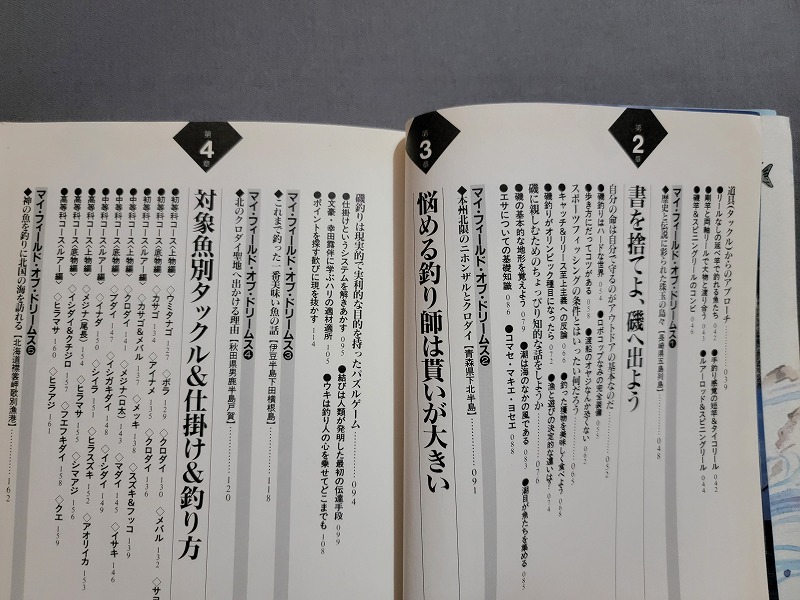 道具(タックル)からのアプローチ……039
●リールなしの延べ竿で釣れる魚たち 042 ●手釣り感覚の短竿&タイコリール 042
●剛竿と両軸リールで大物と渡り合う 043 ●ルアーロッド&スピニングリール 044
●磯竿&スピニングリールのコンビ 046
マイ・フィールド・オブ・ドリームス❶
◆歴史と伝説に彩られた珠玉の島々[長崎県五島列島]……048
第2章
書を捨てよ、磯へ出よう
自分の命は自分で守るのがアウトドアの基本なのだ……052
●磯釣りはハードな世界 054 ●ロボコップなみの完全装備 055
●歩き方にだってコツがある 058 ●渡船のオヤジなんか怖くない
スポーツフィッシングの条件とはいったい何だろう……065
●キャッチ&リリース至上主義への反論 066 ●釣った獲物を美味しく食べよう 068
●磯釣りがオリンピック種目になったら 072 ●漁と遊びの決定的な違いは? 074
磯に親しむためのちょっぴり知的な話をしようか……076
●磯の基本的な地形を覚えよう ●潮は海のなかの風である 083 ●潮目が魚たちを集める 085
●エサについての基礎知識 086 ●コマセ・マキエ・ヨセエ 088
マイ・フィールド・オブ・ドリームス❷
◆本州北限のニホンザルとクロダイ[青森県下北半島]……091
第3章
悩める釣り師は貰いが大きい
磯釣りは現実的で実利的な目的を持ったパズルゲーム……094
●仕掛けというシステムを解きあかす 095 ●結びは人類が発明した最初の伝達手段 099
●文豪・幸田露伴に学ぶハリの適材適所 105 ●ウキは釣り人の心を乗せてどこまでも 108
●ポイントを探す歓びに現を抜かす 114
マイ・フィールド・オブ・ドリームス❸
◆これまで釣った一番美味い魚の話[伊豆半島下田横根島]……118
マイ・フィールド・オブ・ドリームス❹
◆北のクロダイ聖地へ出かける理由[秋田県男鹿半島戸賀]……120
第4章
対象魚別タックル&仕掛け&釣り方
●初等科コース〈上物編〉◇ウミタナゴ 127 ◇ボラ 129 ◇クロダイ 130 ◇メバル 132 ◇サヨ
●初等科コース〈底物編〉◇カサゴ 134 ◇アイナメ 135 ◇クロダイ 136
●初等科コース〈ルアー編〉◇カサゴ&メバル 137 ◇メッキ 138 ◇スズキ&フッコ 139
●中等科コース〈上物編〉◇クロダイ 141 ◇メジナ(口太) 143 ◇マダイ 145 ◇イサキ 146
●中等科コース〈底物編〉◇ブダイ 147 ◇イシガキダイ 148 ◇イシダイ 149
●中等科コース〈ルアー編〉◇イナダ 150 ◇シイラ 151 ◇ヒラスズキ 152 ◇アオリイカ 153
●高等科コース〈上物編〉◇メジナ(尾長) 154 ◇ヒラマサ 155 ◇シマアジ 156
●高等科コース〈底物編〉◇イシダイ&クチジロ 157 ◇フエフキダイ 158 ◇クエ 159
●高等科コース〈ルアー編〉◇ヒラマサ 160 ◇ヒラアジ 161
マイ・フィールド・オブ・ドリームス❺
◆神の魚を釣りに北国の海を訪れる[北海道襟裳岬歌別漁港]……162